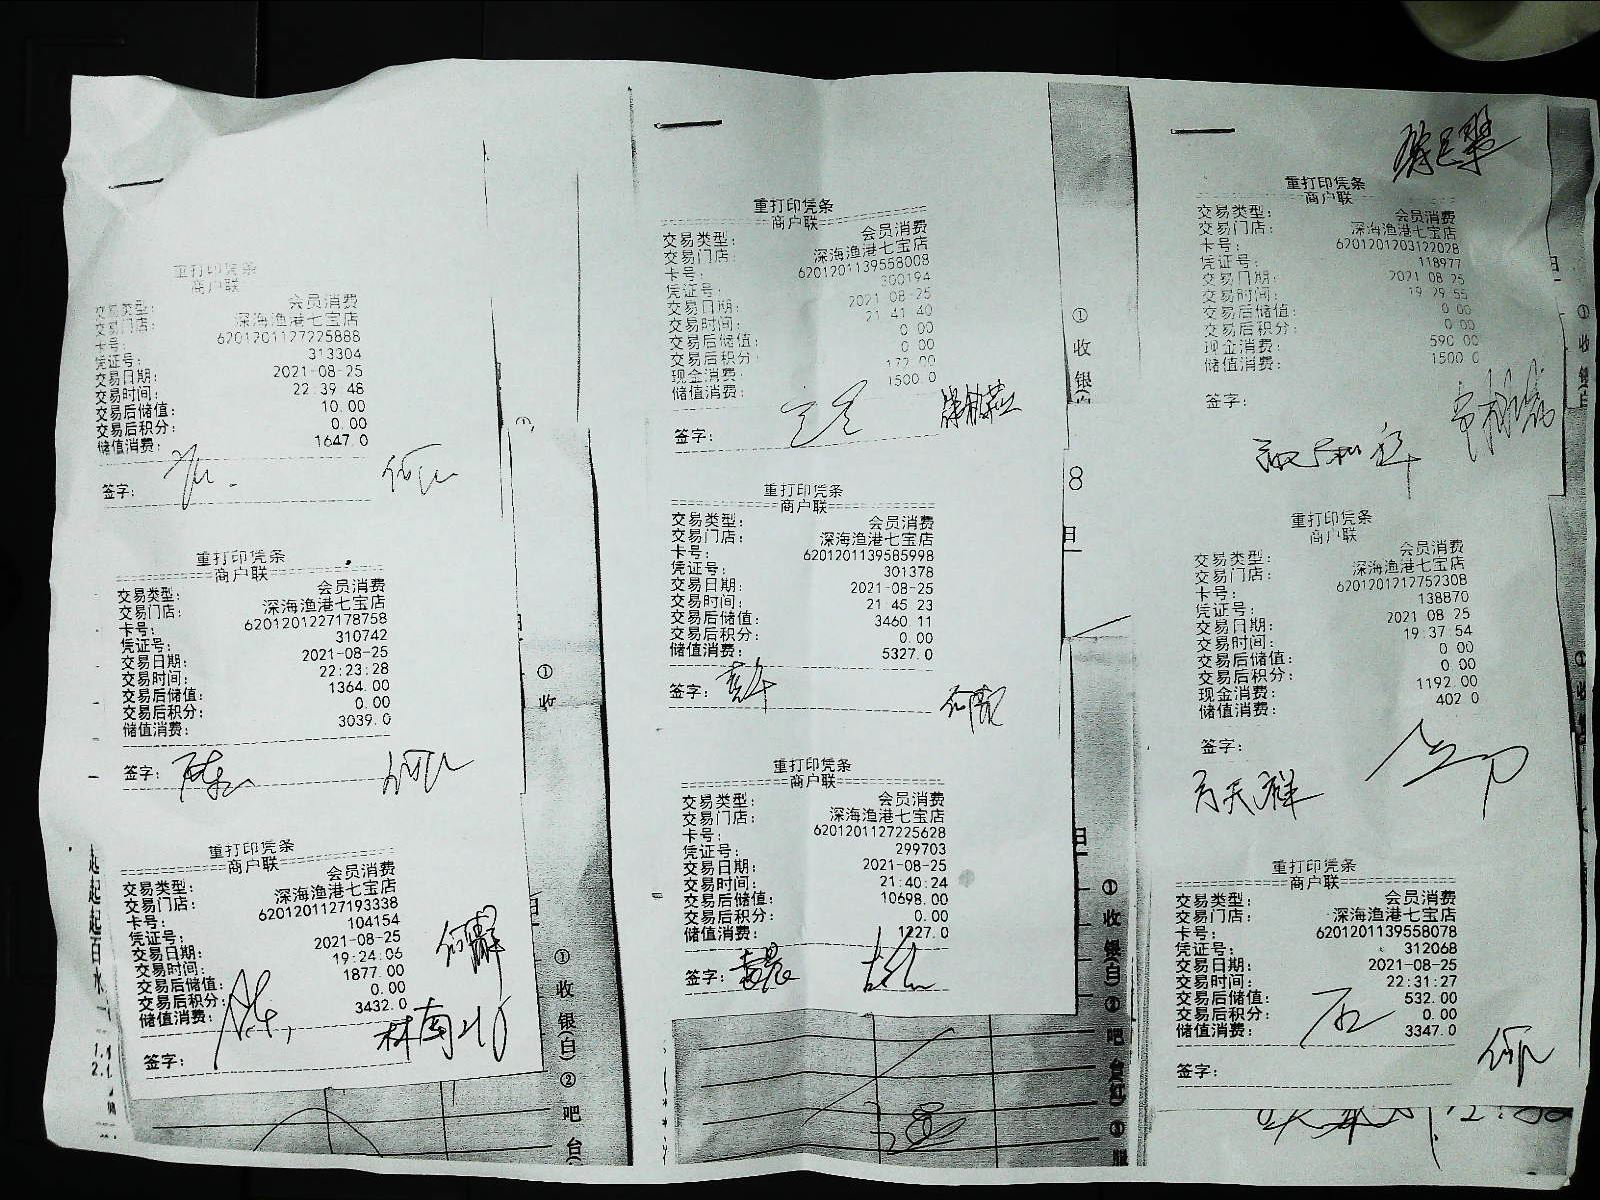 重打印凭条
商户联
交易类型: 会员消费
交易门店: 深海渔港七宝店
卡号: 6201201127225888
凭证号: 313304
交易日期: 2021-08-25
交易时间: 22:39:48
交易后储值: 10.00
交易后积分: 0.00
储值消费: 1647.0
签字:
重打印凭条
商户联
交易类型: 会员消费
交易门店: 深海渔港七宝店
卡号: 6201201227178758
凭证号: 310742
交易日期: 2021-08-25
交易时间: 22:23:28
交易后储值: 1364.00
交易后积分: 0.00
储值消费: 3039.0
签字:
重打印凭条
商户联
交易类型: 会员消费
交易门店: 深海渔港七宝店
卡号: 6201201127193338
凭证号: 104154
交易日期: 2021-08-25
交易时间: 19:24:06
交易后储值: 1877.00
交易后积分: 0.00
储值消费: 3432.0
签字:
林南
重打印凭条
商户联
交易类型: 会员消费
交易门店: 深海渔港七宝店
卡号: 6201201139558008
凭证号: 300194
交易日期: 2021-08-25
交易时间: 21 41 40
交易后储值: 0 00
交易后积分: 0 00
现金消费: 172 00
储值消费: 1500.0
签字:
重打印凭条
商户联
交易类型: 会员消费
交易门店: 深海渔港七宝店
卡号: 6201201139585998
凭证号: 301378
交易日期: 2021-08-25
交易时间: 21 45 23
交易后储值: 3460 11
交易后积分: 0.00
储值消费: 5327.0
签字:
重打印凭条
商户联
交易类型: 会员消费
交易门店: 深海渔港七宝店
卡号: 6201201127225628
凭证号: 299703
交易日期: 2021-08-25
交易时间: 21:40:24
交易后储值: 10698.00
交易后积分: 0.00
储值消费: 1227.0
签字:
重打印凭条
商户联
交易类型: 会员消费
交易门店: 深海渔港七宝店
卡号: 6201201203122028
凭证号: 118977
交易日期: 2021 08 25
交易时间: 19 29 55
交易后储值: 0 00
交易后积分: 0 00
现金消费: 590 00
储值消费: 1500 0
签字:
重打印凭条
商户联
交易类型: 会员消费
交易门店: 深海渔港七宝店
卡号: 6201201212752308
凭证号: 138870
交易日期: 2021 08 25
交易时间: 19 37 54
交易后储值: 0 00
交易后积分: 0 00
现金消费: 1192 00
储值消费: 402 0
签字:
方天祥
重打印凭条
商户联
交易类型: 会员消费
交易门店: 深海渔港七宝店
卡号: 6201201139558078
凭证号: 312068
交易日期: 2021-08-25
交易时间: 22:31:27
交易后储值: 532.00
交易后积分: 0.00
储值消费: 3347.0
签字:
① 收 银(白) ② 吧 台(
① 收 银(白) ② 吧 台(红) ③ 服
① 收
① 收 银(白
8
日